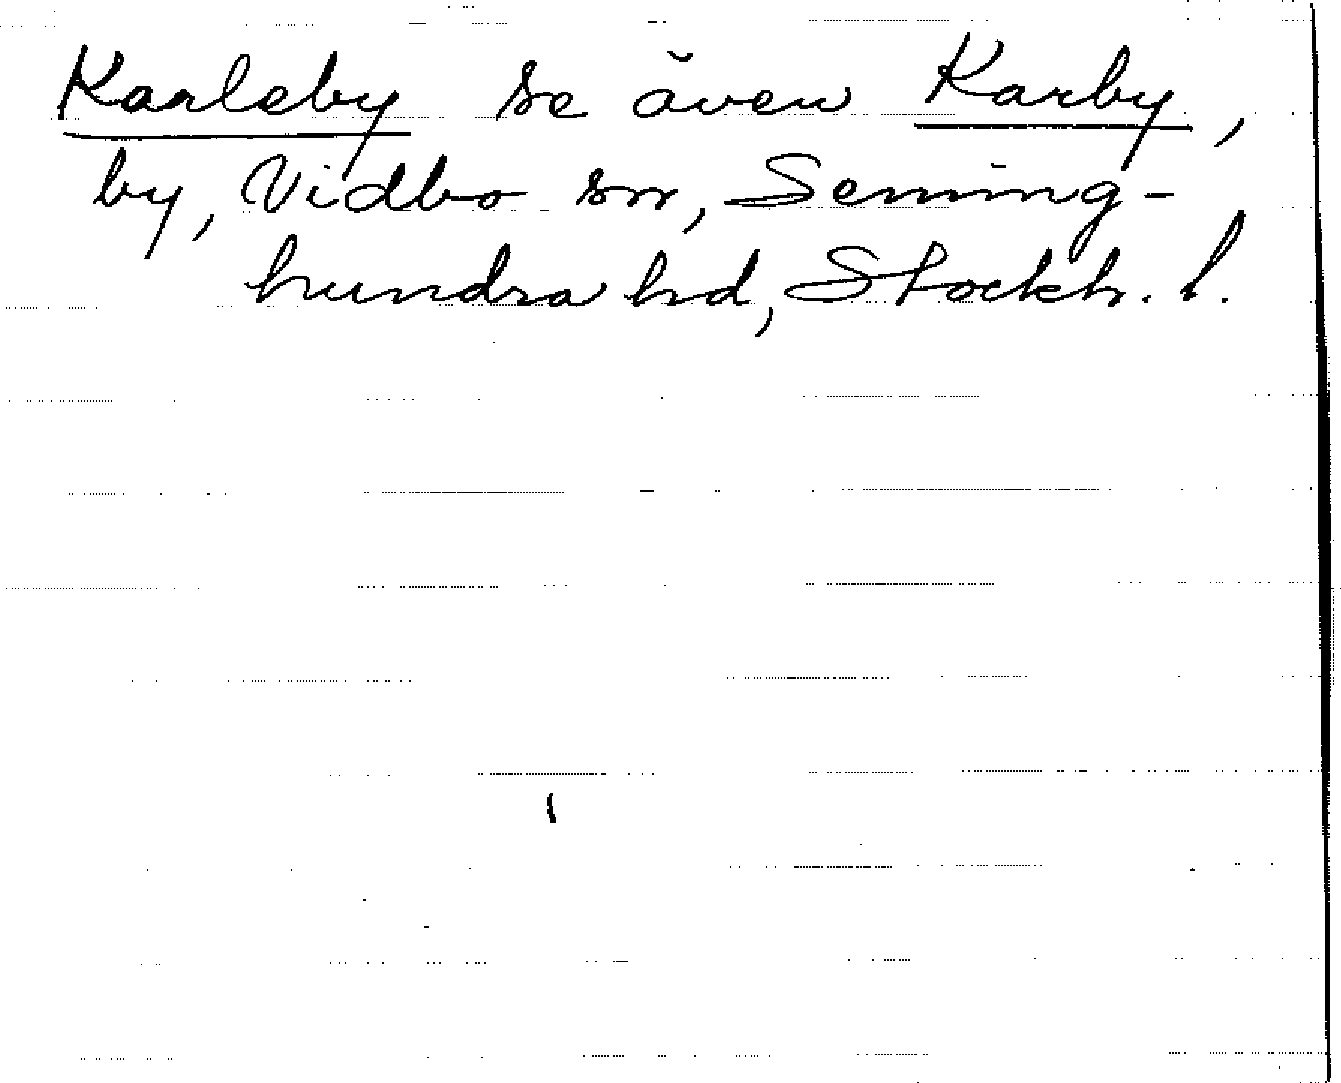 Karleby se även Karby,
by, Vidbo sn, Seming-
hundra hd, Stockh. l.